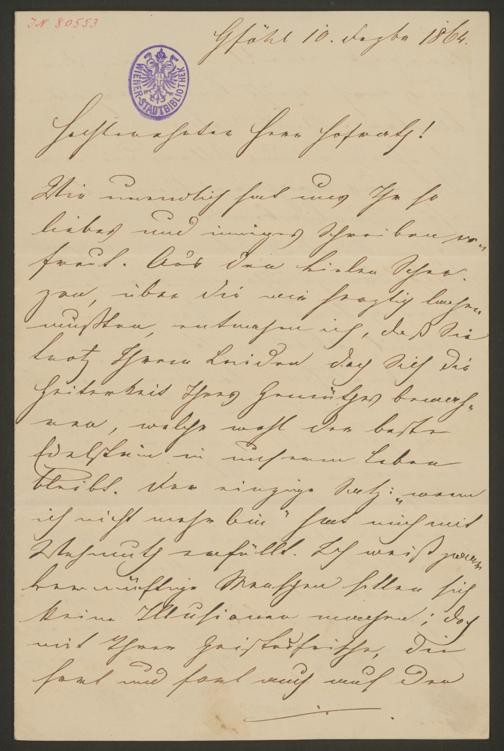 JN 80553
Gföhl 10. Dezbr 1864.
WIENER-STADTBIBLIOTHEK
Hochverehrter Herr Hofrath!
Wie unendlich hat uns Ihr so
liebes und inniges Schreiben er-
freut. Aus den vielen Scher-
zen, über die wir herzlich lachen
mußten, entnahm ich, daß Sie
trotz Ihrem Leiden doch sich die
Heiterkeit Ihres Gemüthes bewah-
ren, welche wohl der beste
Edelstein in unserem Leben
bleibt. Der einzige Satz: "wenn
ich nicht mehr bin" hat mich mit
Wehmuth erfüllt. Ich weiß zwar
vernünftige Menschen sollen sich
keine Illusionen machen; doch
mit Ihrer Geistesfrische, die
fort und fort auch auf den